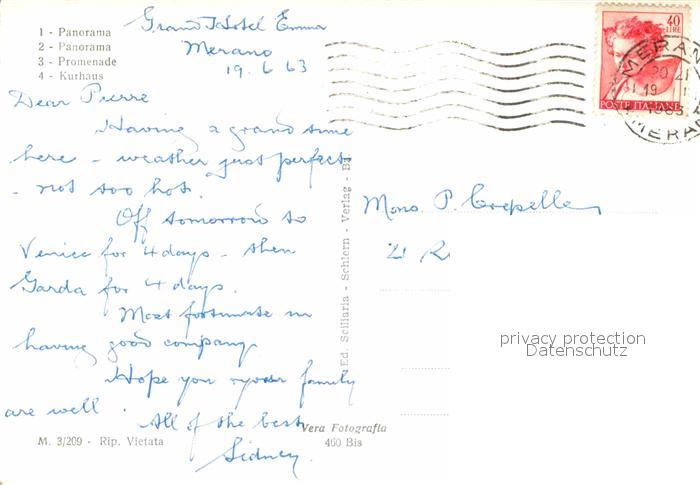 1 - Panorama
2 - Panorama
3 - Promenade
4 - Kurhaus
Grand Hotel Emma
Merano
19.6.63
Dear Pierre
Having a grand time
here - weather just perfect
- not too hot.
Off tomorrow to
Venice for 4 days - then
Garda for 4 days.
Most fortunate in
having good company
Hope you & your family
are well.
All of the best
Sidney.
M. 3/209 - Rip. Vietata
Vera Fotografia
460 Bis
Ed. Sciliaria - Schlern - Verlag -
40
LIRE
POSTE ITALIANE
MERANO
19
1963
MERAN
Mons. P. Crepelle
21 R
privacy protection
Datenschutz